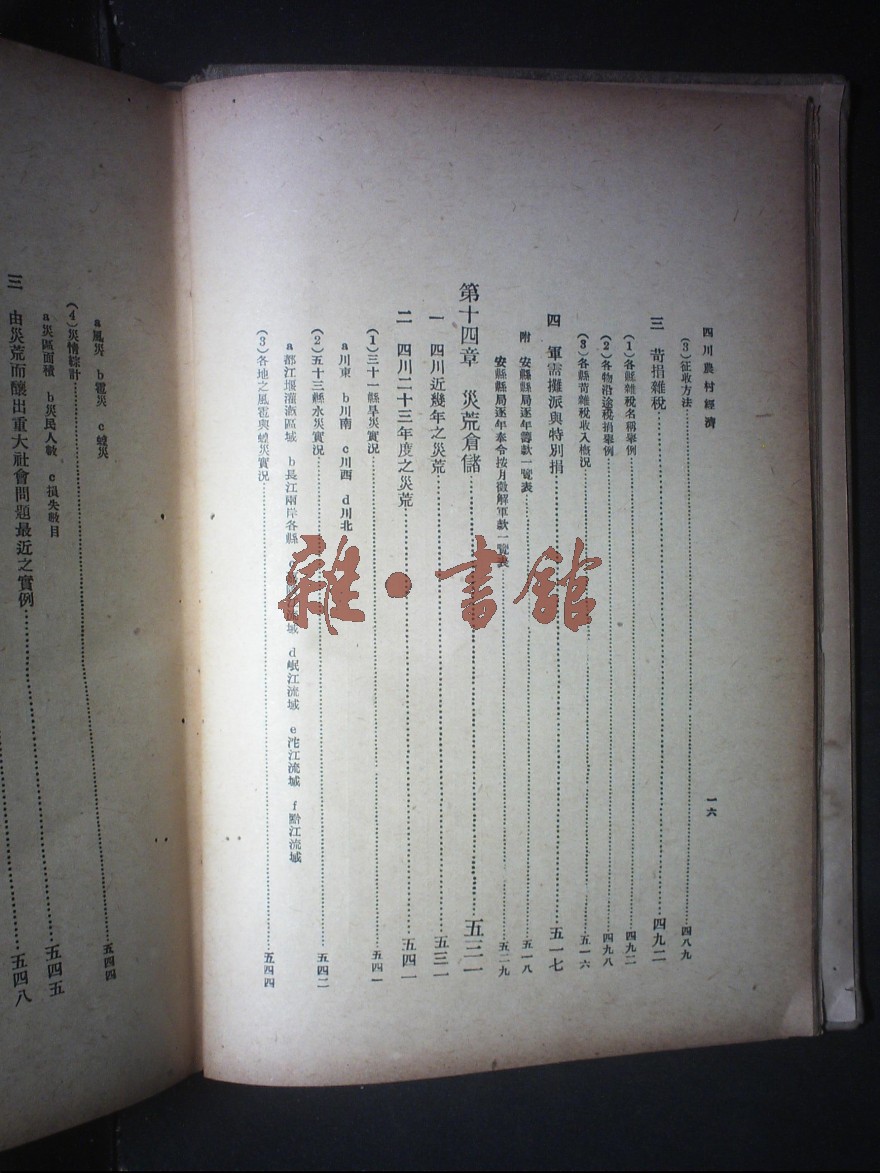 四川農村經濟
一六
(3)征收方法 四八九
三 苛捐雜稅 四九二
(1)各縣雜稅名稱舉例 四九二
(2)各物沿途稅捐舉例 四九八
(3)各縣苛雜稅收入概況 五一六
四 軍需攤派與特別捐 五一七
附 安縣縣局逐年籌款一覽表 五一八
安縣縣局逐年奉令按月徵解軍款一覽表 五二九
第十四章 災荒倉儲 五三一
一 四川近幾年之災荒 五三一
二 四川二十三年度之災荒 五四一
(1)三十一縣旱災實況 五四一
a川東 b川南 c川西 d川北
(2)五十三縣水災實況 五四二
a都江堰灌溉區域 b長江兩岸各縣 流域 d岷江流域 e沱江流域 f黔江流域
(3)各地之風雹與蝗災實況 五四四
a風災 b雹災 c蝗災 五四四
(4)災情綜計 五四五
a災區面積 b災民人數 c損失數目
三 由災荒而釀出重大社會問題最近之實例 五四八
雜·書館